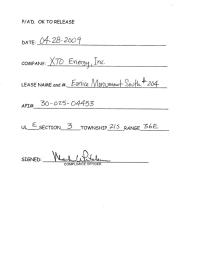 P/A'D. OK TO RELEASE
DATE: 04-28-2009
COMPANY: XTO Energy, Inc
LEASE NAME and #: Eunice Monument South # 204
API# 30-025-04453
UL E SECTION 3 TOWNSHIP 21S RANGE 36E
SIGNED:
COMPLIANCE OFFICER